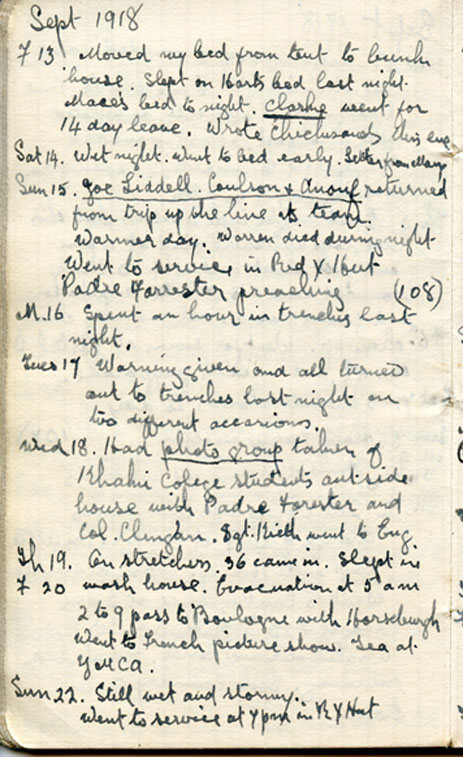 Sept 1918
F 13 Moved my bed from tent to bunk
house. Slept on Harts bed last night.
Mace's bed to night. Clarke went for
14 day leave. Wrote Chicksands this eve
Sat 14. Wet night. Went to bed early. Letter from Mary
Sun 15. Joe Liddell. Coulson & returned
from trip up the line as team.
Warmer day. Warren died during night
Went to service in Red X Hut
Padre Forrester preaching (108)
M. 16 Spent an hour in trenches last
night.
Tues 17 Warning given and all turned
out to trenches last night on
two different occasions.
Wed 18. Had photo group taken of
Khaki College students outside
house with Padre Forester and
Col. Sgt. went to Eng
Th 19. On stretchers. 36 came in. Slept in
F 20 wash house. Evacuation at 5 am
2 to 9 pass to Boulogne with Horseburgh
Went to French picture show. Tea at
YMCA.
Sun 22. Still wet and stormy.
Went to service at 7 pm in R X Hut